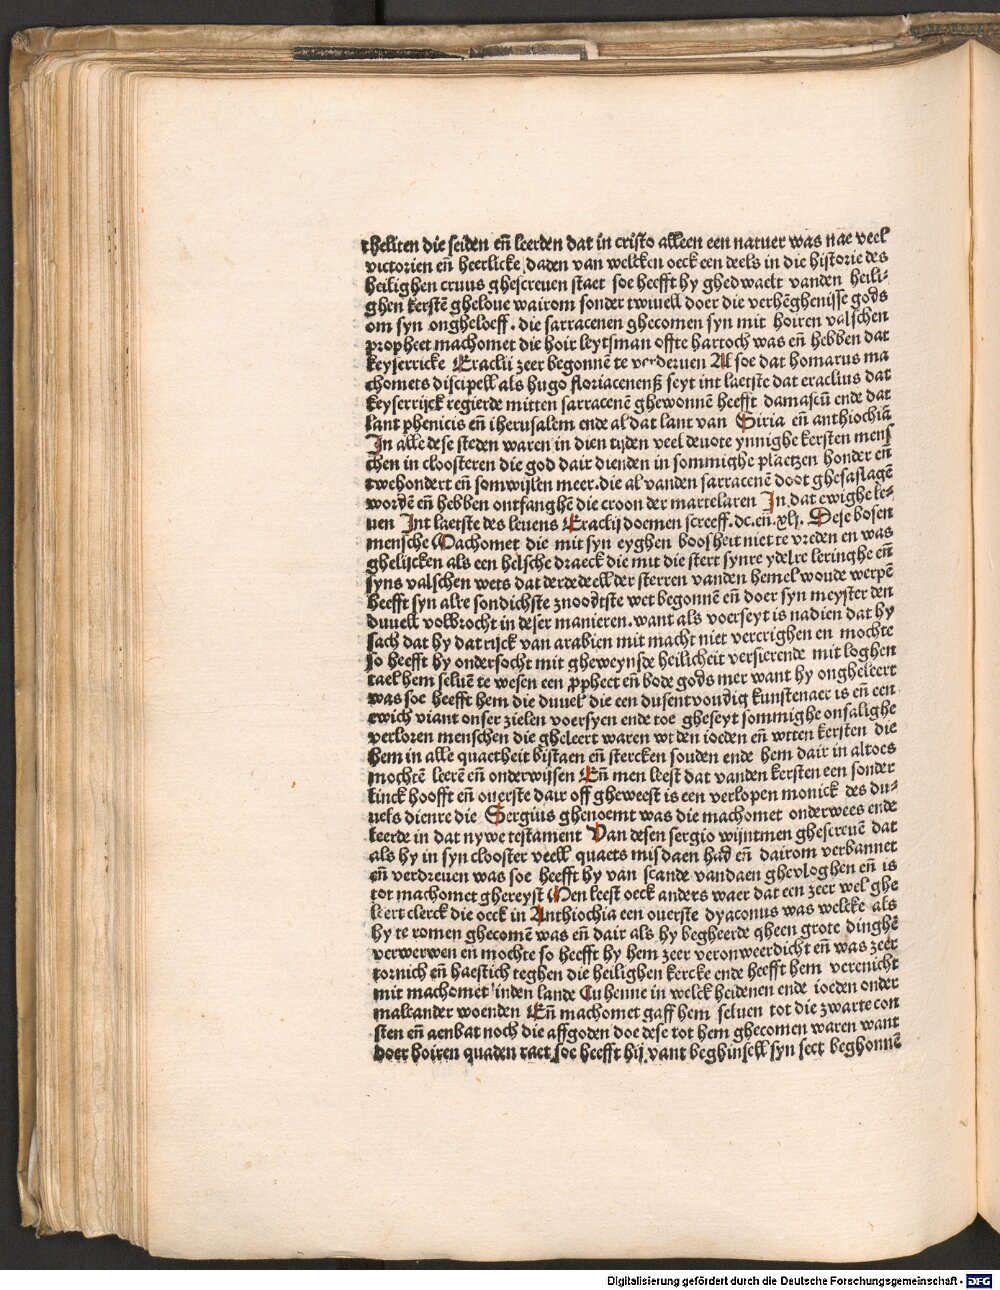 theliten die seiden eñ leerden dat in cristo alleen een natuer was nae veel
victorien eñ heerlicke daden van welcken oeck een deels in die historie des
heilighen cruus ghescreuen staet soe heefft hy ghedwaelt vanden heili-
ghen kerstē gheloue wairom sonder twiuell doer die verhēghenisse gods
om syn ongheloeff. die sarracenen ghecomen syn mit hoiren valschen
propheet machomet die hoir leytsman offte hartoch was eñ hebben dat
keyserricke Eraclii zeer begonnē te verderuen Al soe dat homarus ma
chomets discipell als hugo floriacenenß seyt int laetste dat eraclius dat
keyserrijck regierde mitten sarracenē ghewonnē heefft damascū ende dat
lant phenicis eñ iherusalem ende al dat lant van Siria eñ anthiochiā
In alle dese steden waren in dien tyden veel deuote ynnighe kersten mens
chen in cloosteren die god dair dienden in sommighe plaetzen honder eñ
twehondert eñ somwijlen meer. die al vanden sarracenē doot ghesaslagē
wordē eñ hebben ontfanghē die croon der martelaren In dat ewighe le-
uen Int laetste des leuens Erackij doemen screeff. dc. eñ. xlj. Dese bosen
mensche Machomet die mit syn eyghen boosheit niet te vreden en was
ghelijcken als een helsche draeck die mit die stert synre ydelre leringhe eñ
syns valschen wets dat derde deell der sterren vanden hemel woude werpē
heefft syn alre sondichste znoodtste wet begonnē eñ doer syn meyster den
duuell volbrocht in deser manieren. want als voerseyt is nadien dat hy
sach dat hy dat rijck van arabien mit macht niet vercrighen en mochte
so heefft hy ondersocht mit gheweynsde heilicheit versierende mit loghen
tael hem seluē te wesen een ꝓpheet eñ bode gods mer want hy ongheleert
was soe heefft hem die duuel die een dusentvoudig kunstenaer is eñ een
ewich viant onser zielen voersyen ende toe gheseyt sommighe onsalighe
verloren menschen die gheleert waren wt den ioeden eñ wtten kersten die
hem in alle quaetheit bistaen eñ stercken souden ende hem dair in altoes
mochtē leerē eñ onderwijsen Eñ men leest dat vanden kersten een sonder
linck hoofft eñ ouerste dair off gheweest is een verlopen monick des du-
uels dienre die Sergius ghenoemt was die machomet onderwees ende
leerde in dat nywe testament Van desen sergio wijntmen ghescreuē dat
als hy in syn clooster veell quaets misdaen had eñ dairom verbannet
eñ verdreuen was soe heefft hy van scande vandaen ghevloghen eñ is
tot machomet ghereyst Men leest oeck anders waer dat een zeer wel ghe
leert clerck die oeck in Anthiochia een ouerste dyaconus was welcke als
hy te romen ghecomē was eñ dair als hy begheerde gheen grote dinghē
verwerwen en mochte so heefft hy hem zeer veronweerdicht eñ was zeer
tornich eñ haestich teghen die heilighen kercke ende heefft hem verenicht
mit machomet inden lande Cuhenne in welck heidenen ende ioeden onder
malcander woenden Eñ machomet gaff hem seluen tot die zwarte con
sten eñ aenbat noch die affgoden doe dese tot hem ghecomen waren want
doer hoiren quaden raet soe heefft hij vant beghinsell syn sect beghonnē
Digitalisierung gefördert durch die Deutsche Forschungsgemeinschaft - DFG